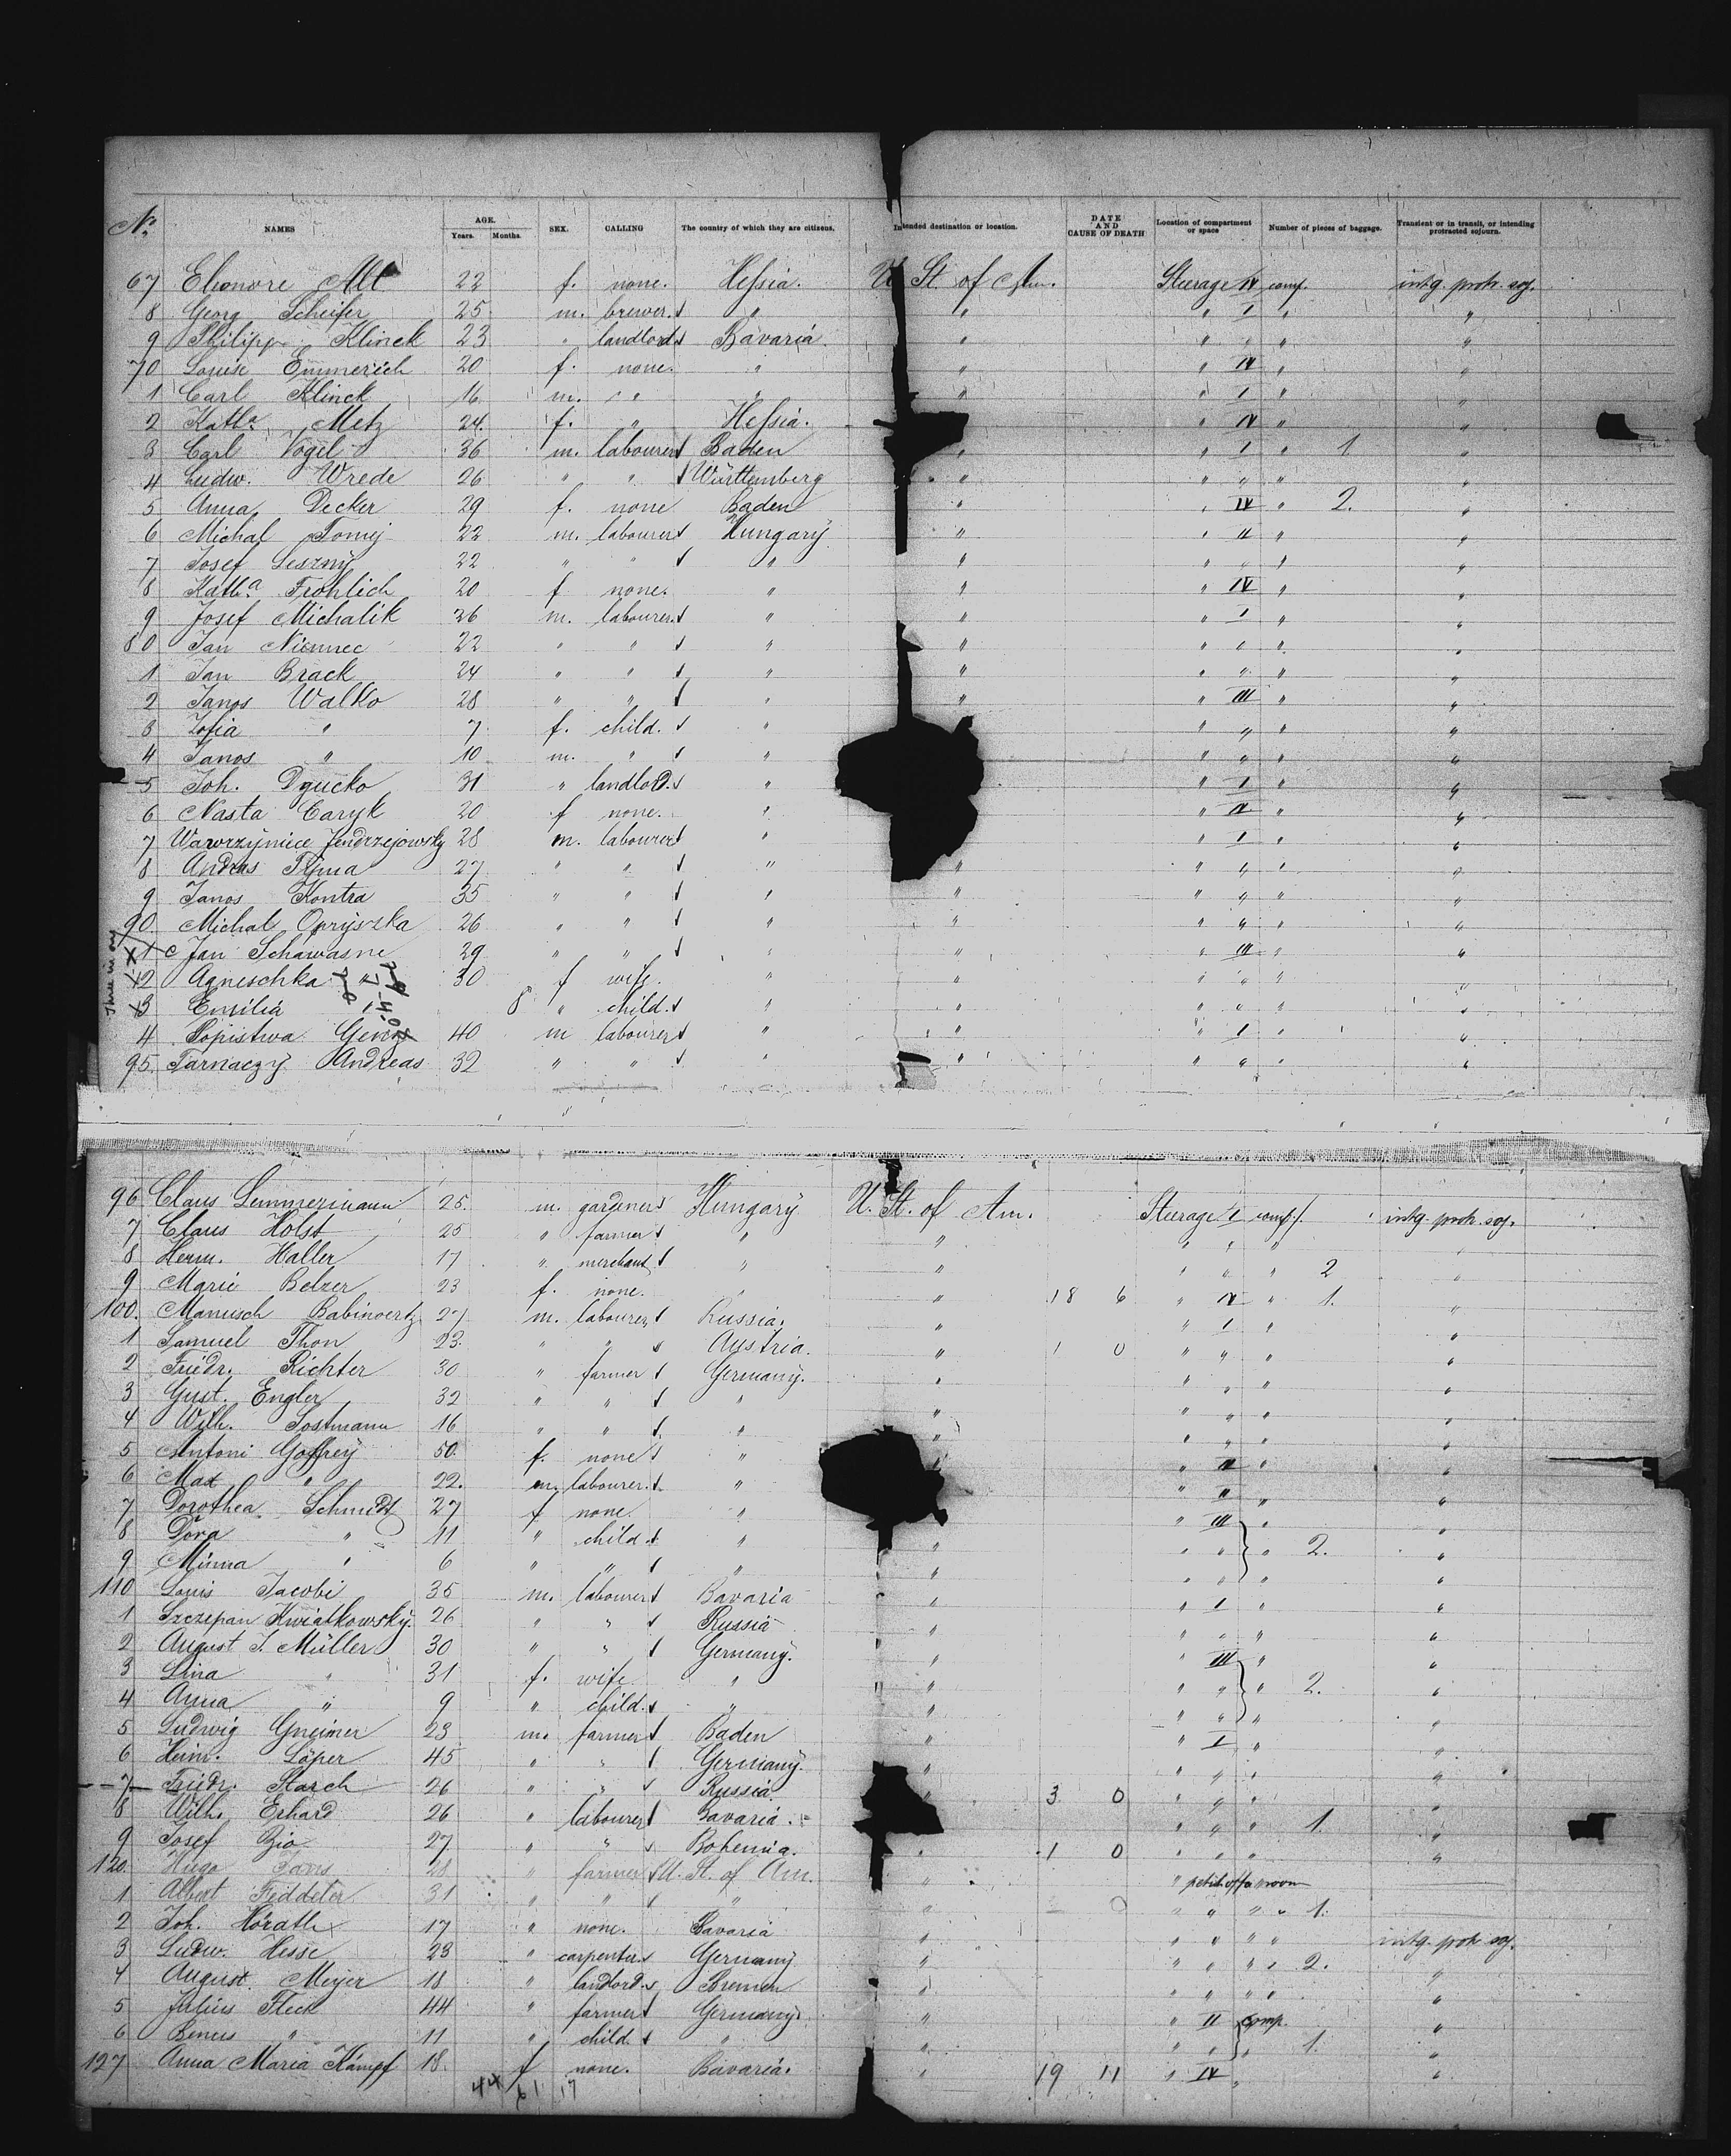 No. NAMES AGE. Years. Months. SEX. CALLING The country of which they are citizens. Intended destination or location. DATE AND CAUSE OF DEATH Location of compartment or space Number of pieces of baggage. Transient or in transit, or intending protracted sojourn.
67 Eleonore Alt 22 f. none. Hessia. U St. of Am. Steerage IV comp. intg. protr. soj.
8 Georg Scheifer 25 m. brewer. " " " I " "
9 Philipp Klinck 23 " landlord Bavaria. " " " " "
70 Louise Emmerich 20 f. none. " " " IV " "
1 Carl Klinck 16 m. " " " " I " "
2 Katha. Metz 24. f. " Hessia. " IV " "
3 Carl Vogel 36 m. labourer Baden " " I " 1 "
4 Ludw. Wrede 26 " " Württemberg " " " " "
5 Anna Decker 29 f. none Baden " " IV " 2. "
6 Michal Tomij 22 m. labourer Hungary " " II " "
7 Josef Leszny 22 " " " " " " " "
8 Katha. Frohlich 20 f none. " " " IV " "
9 Josef Michalik 26 m. labourer. " " " I " "
80 Jan Niemiec 22 " " " " " " " "
1 Jan Brack 24 " " " " " " " "
2 Janos Walko 28 " " " " " III " "
3 Zofia " 7 f. child. " " " " "
4 Janos " 10 m. " " " " " "
5 Joh. Dzucko 31 " landlord. " " I " "
6 Nasta Caryk 20 f none. " " IV " "
7 Wawrzyniec Jendrzejowsky 28 m. labourer " " I " "
8 Andras Tyma 27 " " " " " " " "
9 Janos Kontra 35 " " " " " " " "
90 Michal Opryszka 26 " " " " " " " "
1 Jan Schawasne 29 " " " " " III " "
2 Agneschka " 30 f wife. " " " " " "
3 Emilia 8 " child. " " " " " "
4 Popistwa 40 m labourer " " " I " "
95. Tarnaczy Andreas 32 " " " " " " " "
96 Claus Lemmermann 25. m. gardener Hungary U. St. of Am. Steerage I comp. intg. protr. soj.
7 Claus Holst 25 " farmer " " " " "
8 Herm. Haller 17 " merchant " " " " " 2 "
9 Marie Belzer 23 f. none. " " 18 6 " IV " 1. "
100. Manusch Babinoertz 27 m. labourer Russia. " " I " "
1 Samuel Thon 23. " " Austria. " 1 0 " " " "
2 Friedr. Richter 30 " farmer Germany. " " " " "
3 Gust. Engler 32 " " " " " " " "
4 Wilh. Sostmann 16 " " " " " " " "
5 Antoni Goffrey 50. f. none " " IV " "
6 Max " 22. m. labourer. " " II " "
7 Dorothea Schmidt 27 f none. " " III " "
8 Dora " 11 " child. " " " " " 2. "
9 Minna " 6 " " " " " " " "
110 Louis Jacobi 35 m. labourer Bavaria " " I " "
1 Szczepan Kwiatkowsky. 26 " " Russia " " " " "
2 August J. Müller 30 " " Germany. " " III " "
3 Lina " 31 f. wife " " " " " 2. "
4 Anna " 9 " child. " " " " " "
5 Ludwig Gneiner 23 m. farmer Baden " " I " "
6 Heinr. Löper 45 " " Germany. " " " " "
7 Friedr. Starch 26 " " Russia. 3 0 " " " "
8 Wilh. Erhard 26 " labourer Bavaria. " " " " 1. "
9 Josef Zio 27. " " Bohemia. " 1 0 " " " "
120. Hugo " farmer U. St. of Am. " "
1 Albert Feddeter 31 " " " " " " " " 1.
2 Joh. Horath 17 " none. Bavaria " " " " " intg. protr. soj.
3 Ludw. Hesse 23 " carpenter. Germany " " " " " 2. "
4 August Meyer 18 " landlord. Bremen " " " " " "
5 Julius Fleck 44 " farmer Germany. " " II comp. "
6 " 11 " child. " " " " " 1. "
127 Anna Maria Kämpf 18. f none. Bavaria. " 19 11 " IV " "
44 61 17